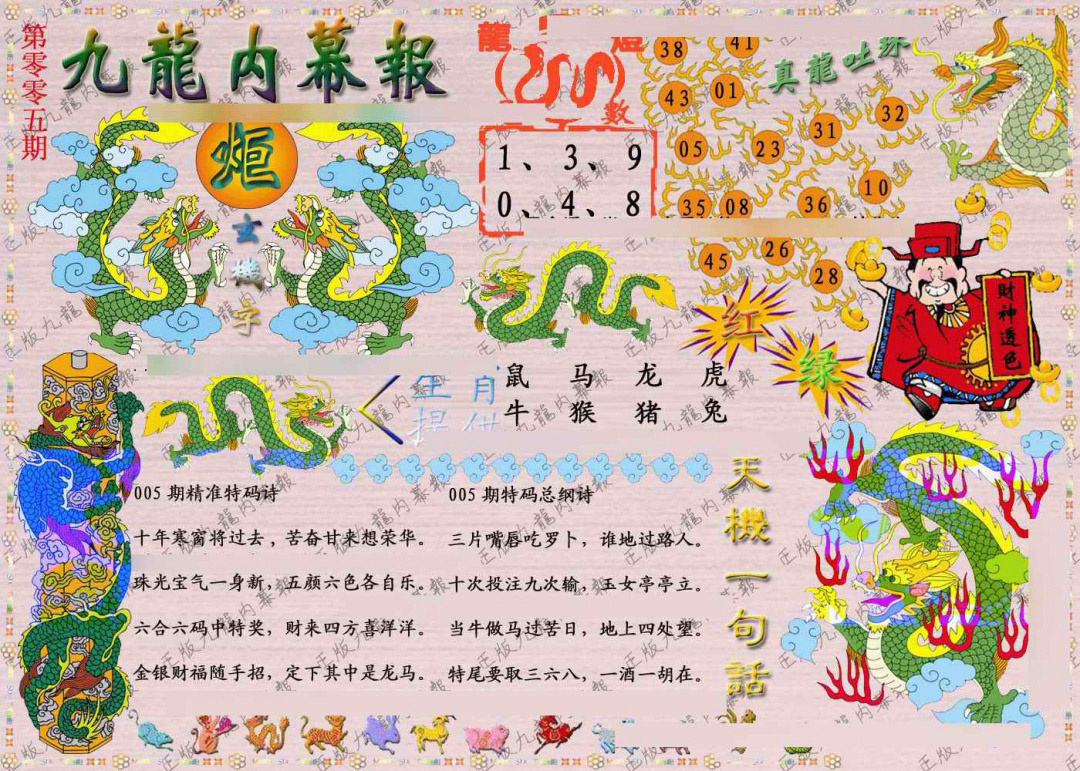 第零零五期
九龍内幕報
炬
玄機字
龍
數
1、3、9
0、4、8
真龍吐珠
38 41
43 01
05 23 31 32
35 08 36 10
45 26 28
红
绿
财神透色
生肖
提供
鼠 马 龙 虎
牛 猴 猪 兔
005期精准特码诗
十年寒窗将过去，苦奋甘来想荣华。
珠光宝气一身新，五颜六色各自乐。
六合六码中特奖，财来四方喜洋洋。
金银财福随手招，定下其中是龙马。
005期特码总纲诗
三片嘴唇吃罗卜，谁地过路人。
十次投注九次输，玉女亭亭立。
当牛做马过苦日，地上四处望。
特尾要取三六八，一酒一胡在。
天機一句話
正版九龍内幕報